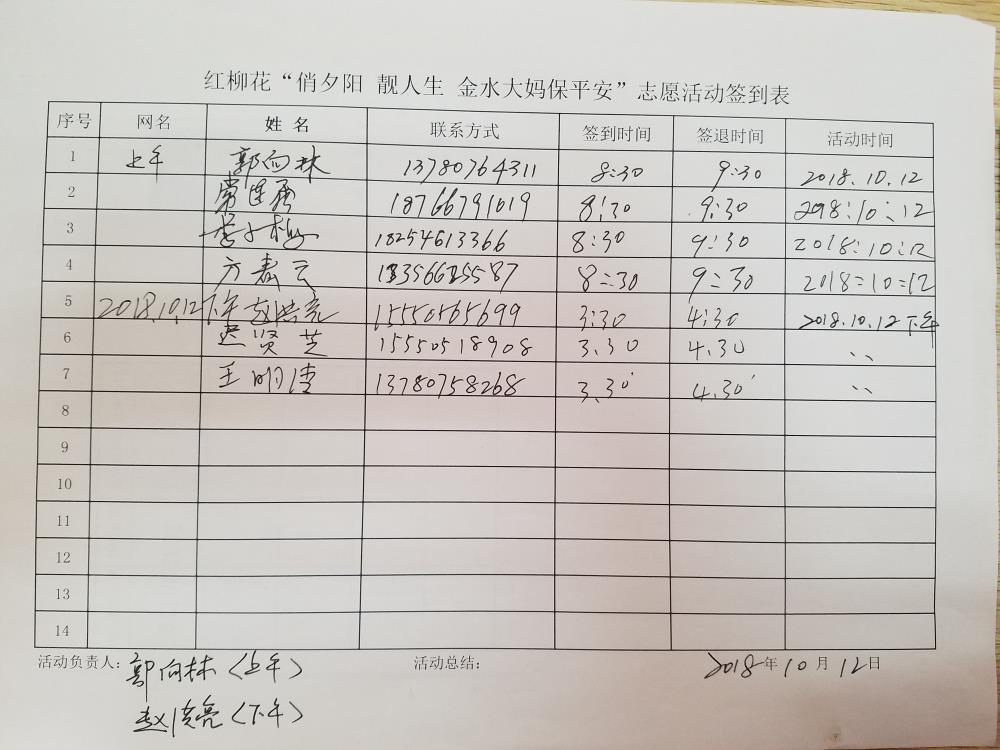 红柳花“俏夕阳 靓人生 金水大妈保平安”志愿活动签到表
序号 网名 姓名 联系方式 签到时间 签退时间 活动时间
1 上午 郭向林 13780764311 8:30 9:30 2018.10.12
2 18766791019 8:30 9:30 2018:10:12
3 18254613366 8:30 9:30 2018:10:12
4 方春云 8:30 9:30 2018=10=12
5 2018.10.12下午 赵洪亮 15550565699 3:30 4:30 2018.10.12下午
6 贤芝 15550518908 3.30 4.30 、、
7 王明清 13780758268 3.30 4.30 、、
8
9
10
11
12
13
14
活动负责人: 郭向林(上午) 活动总结: 2018年10月12日
赵洪亮(下午)